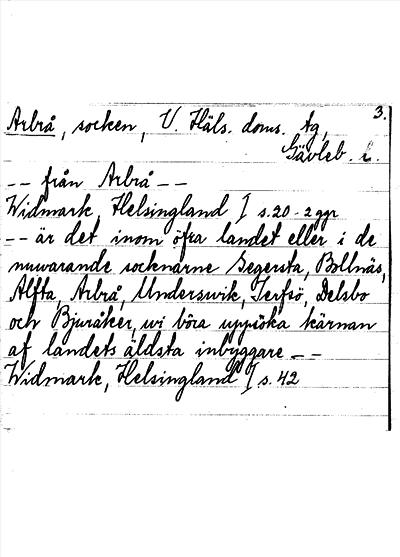 3.
Arbrå, socken, V. Häls. doms. tg,
Gävleb. l.
-- från Arbrå --
Widmark, Helsingland I s.20 - 2 ggr
-- är det inom öfra landet eller i de
nuwarande socknarne Segersta, Bollnäs,
Alfta, Arbrå, Underswik, Jerfsö, Delsbo
och Bjuråker, wi böra uppsöka kärnan
af landets äldsta inbyggare --
Widmark, Helsingland I s. 42